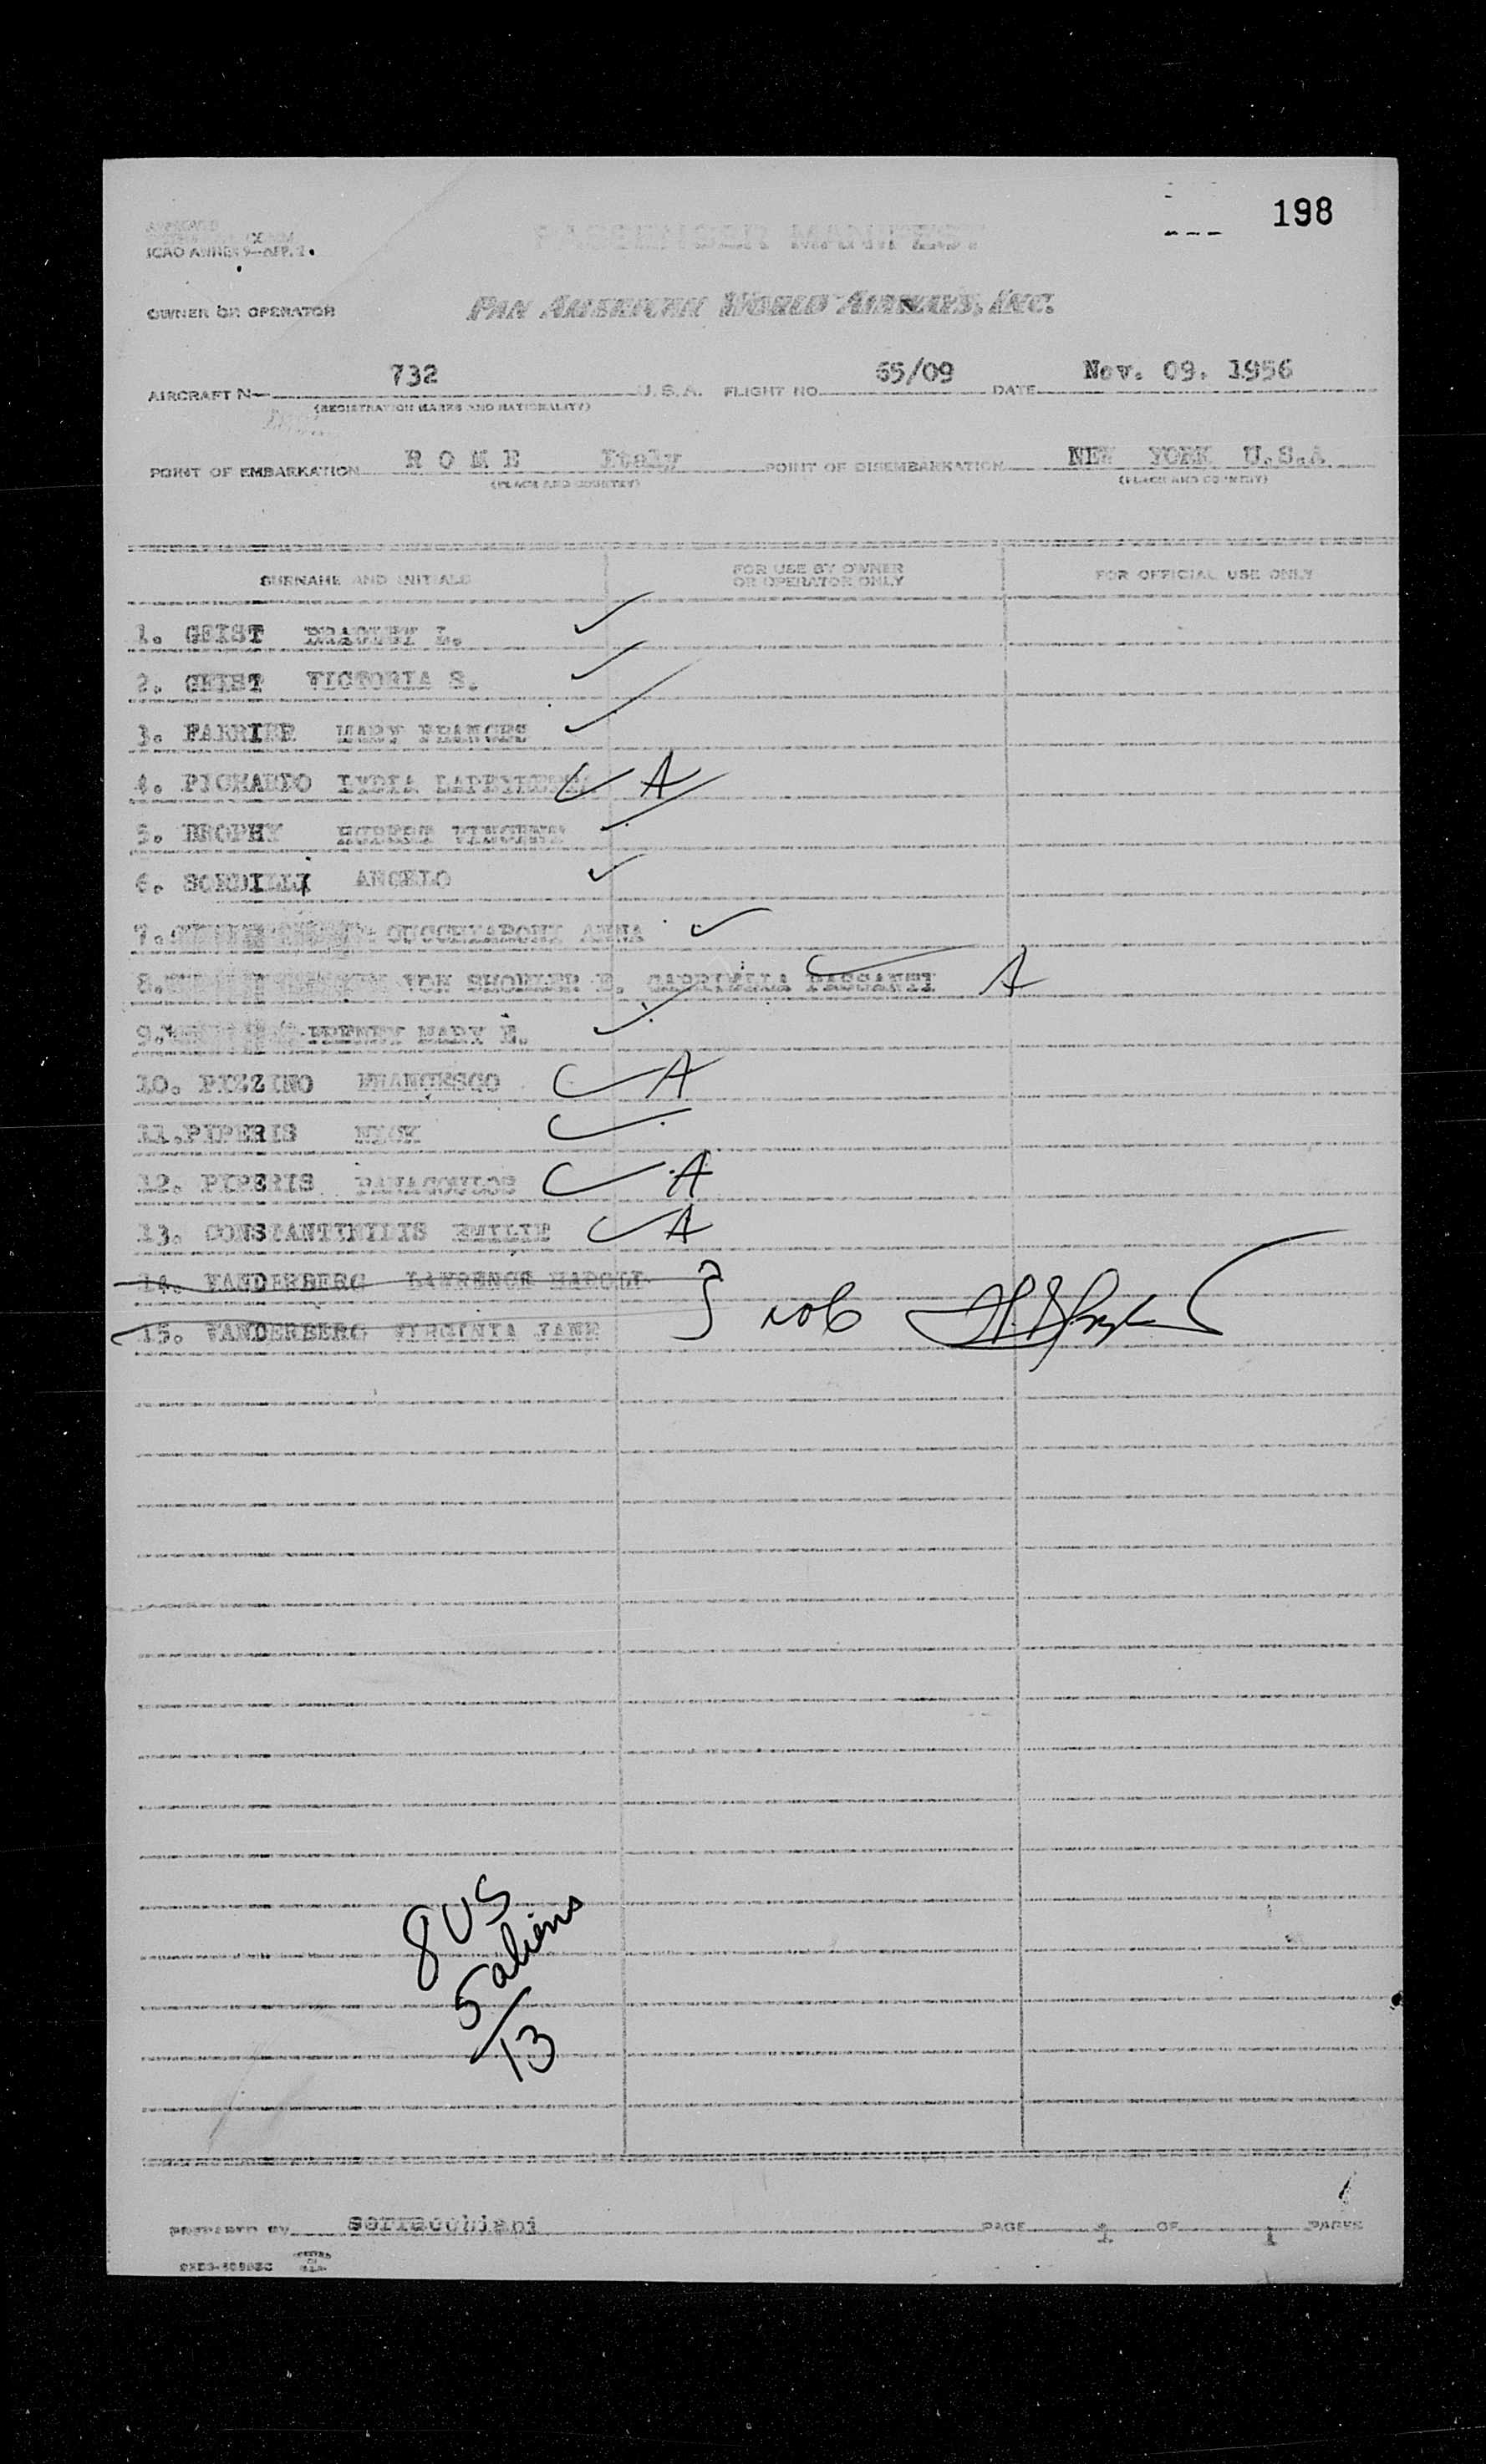 198
ICAO ANNEX 9—APP. 2
PASSENGER MANIFEST
OWNER OR OPERATOR PAN AMERICAN WORLD AIRWAYS, INC.
AIRCRAFT N— 732 U.S.A. FLIGHT NO. 65/09 DATE Nov. 09. 1956
(REGISTRATION MARKS AND NATIONALITY)
POINT OF EMBARKATION R O M E Italy POINT OF DISEMBARKATION NEW YORK U.S.A
(PLACE AND COUNTRY) (PLACE AND COUNTRY)
SURNAME AND INITIALS FOR USE BY OWNER OR OPERATOR ONLY FOR OFFICIAL USE ONLY
1. GEIST L. ✓
2. GEIST VICTORIA S. ✓
3. FARRIER MARY FRANCES ✓
4. PICHARDO LYDIA ✓ A
5. BROPHY VINCENT ✓
6. SORDILLI ANGELO ✓
7. ANNA ✓
8. VON E. GABRIELLA PASSANTI ✓ A
9. MARY E. ✓
10. PIZZINO FRANCESCO ✓ A
11. PIPERIS NICK ✓
12. PIPERIS ✓ A
13. CONSTANTINIDIS EMILIE ✓ A
14. VANDERBERG LAWRENCE
15. VANDERBERG VIRGINIA JANE
8 US
5 aliens
13
PREPARED BY PAGE 1 OF 1 PAGES